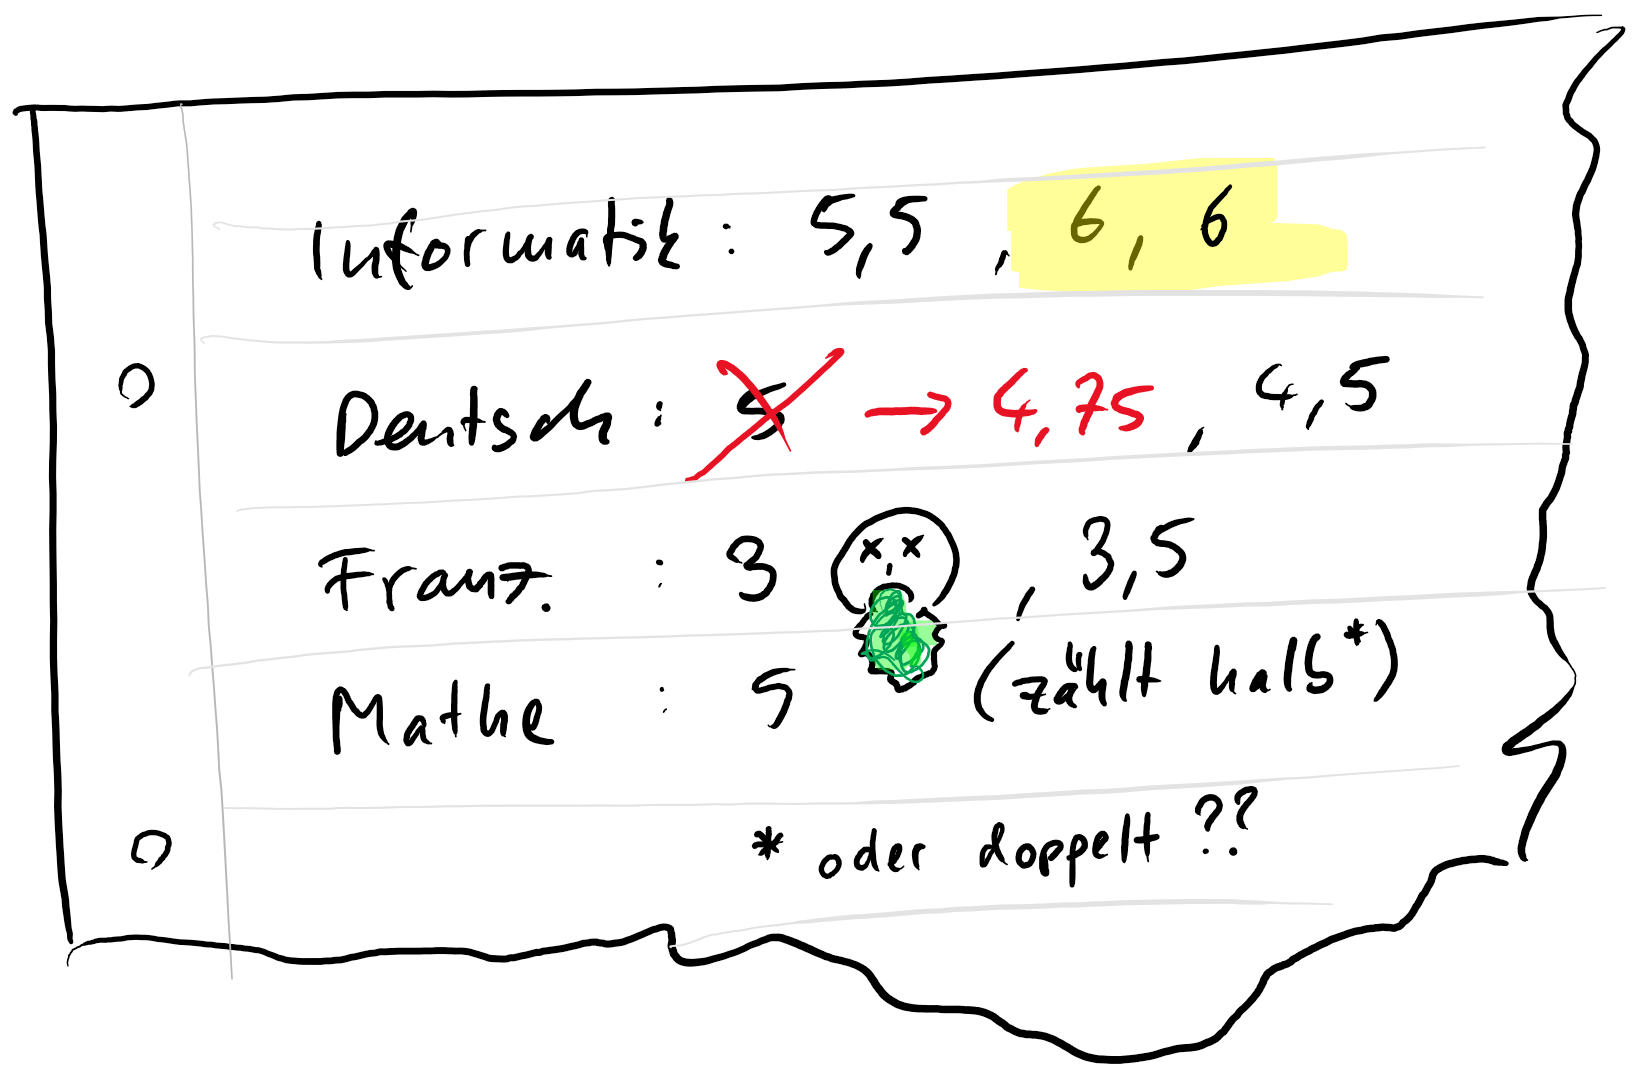 Informatik: 5,5, 6, 6
Deutsch: 5 → 4,75, 4,5
Franz.: 3, 3,5
Mathe: 5 (zählt halb*)
* oder doppelt ??